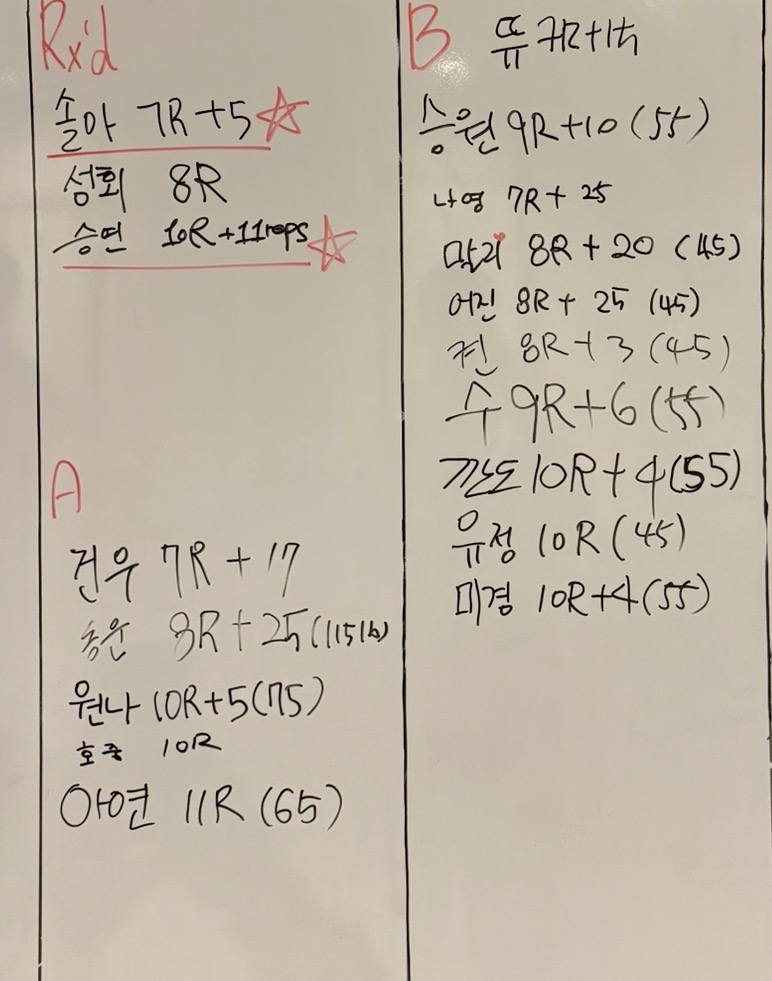 Rx'd
솔아 7R+5
성회 8R
승연 10R+11reps
A
건우 7R+17
8R+25(115lb)
원나 10R+5(75)
호중 10R
아연 11R(65)
B
뜌 7R+1개
승원 9R+10(55)
나영 7R+25
8R+20(45)
어진 8R+25(45)
켠 8R+3(45)
수 9R+6(55)
깐도 10R+4(55)
유정 10R(45)
미경 10R+4(55)